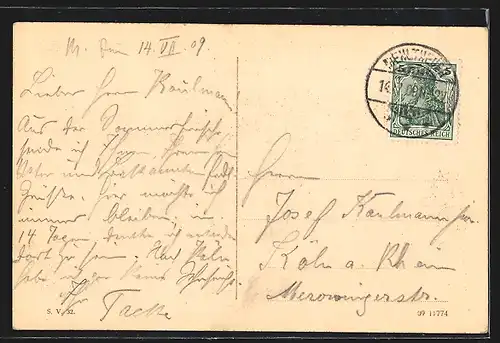 M. den 14. VII. 09.
Lieber Herr Kaulmann
Aus der Sommerfrische
sende ich Ihnen, Ihrem
Vater und Bekannten
Grüsse. Hier möchte ich
immer bleiben, in
14 Tagen denke ich wieder
dort zu sein. Nach Köln
habe
Ihr Tacke
S. V. 32.
DEUTSCHES REICH
Herrn
Josef Kaulmann jr.
Köln a. Rhein
Merowingerstr.
09 11774